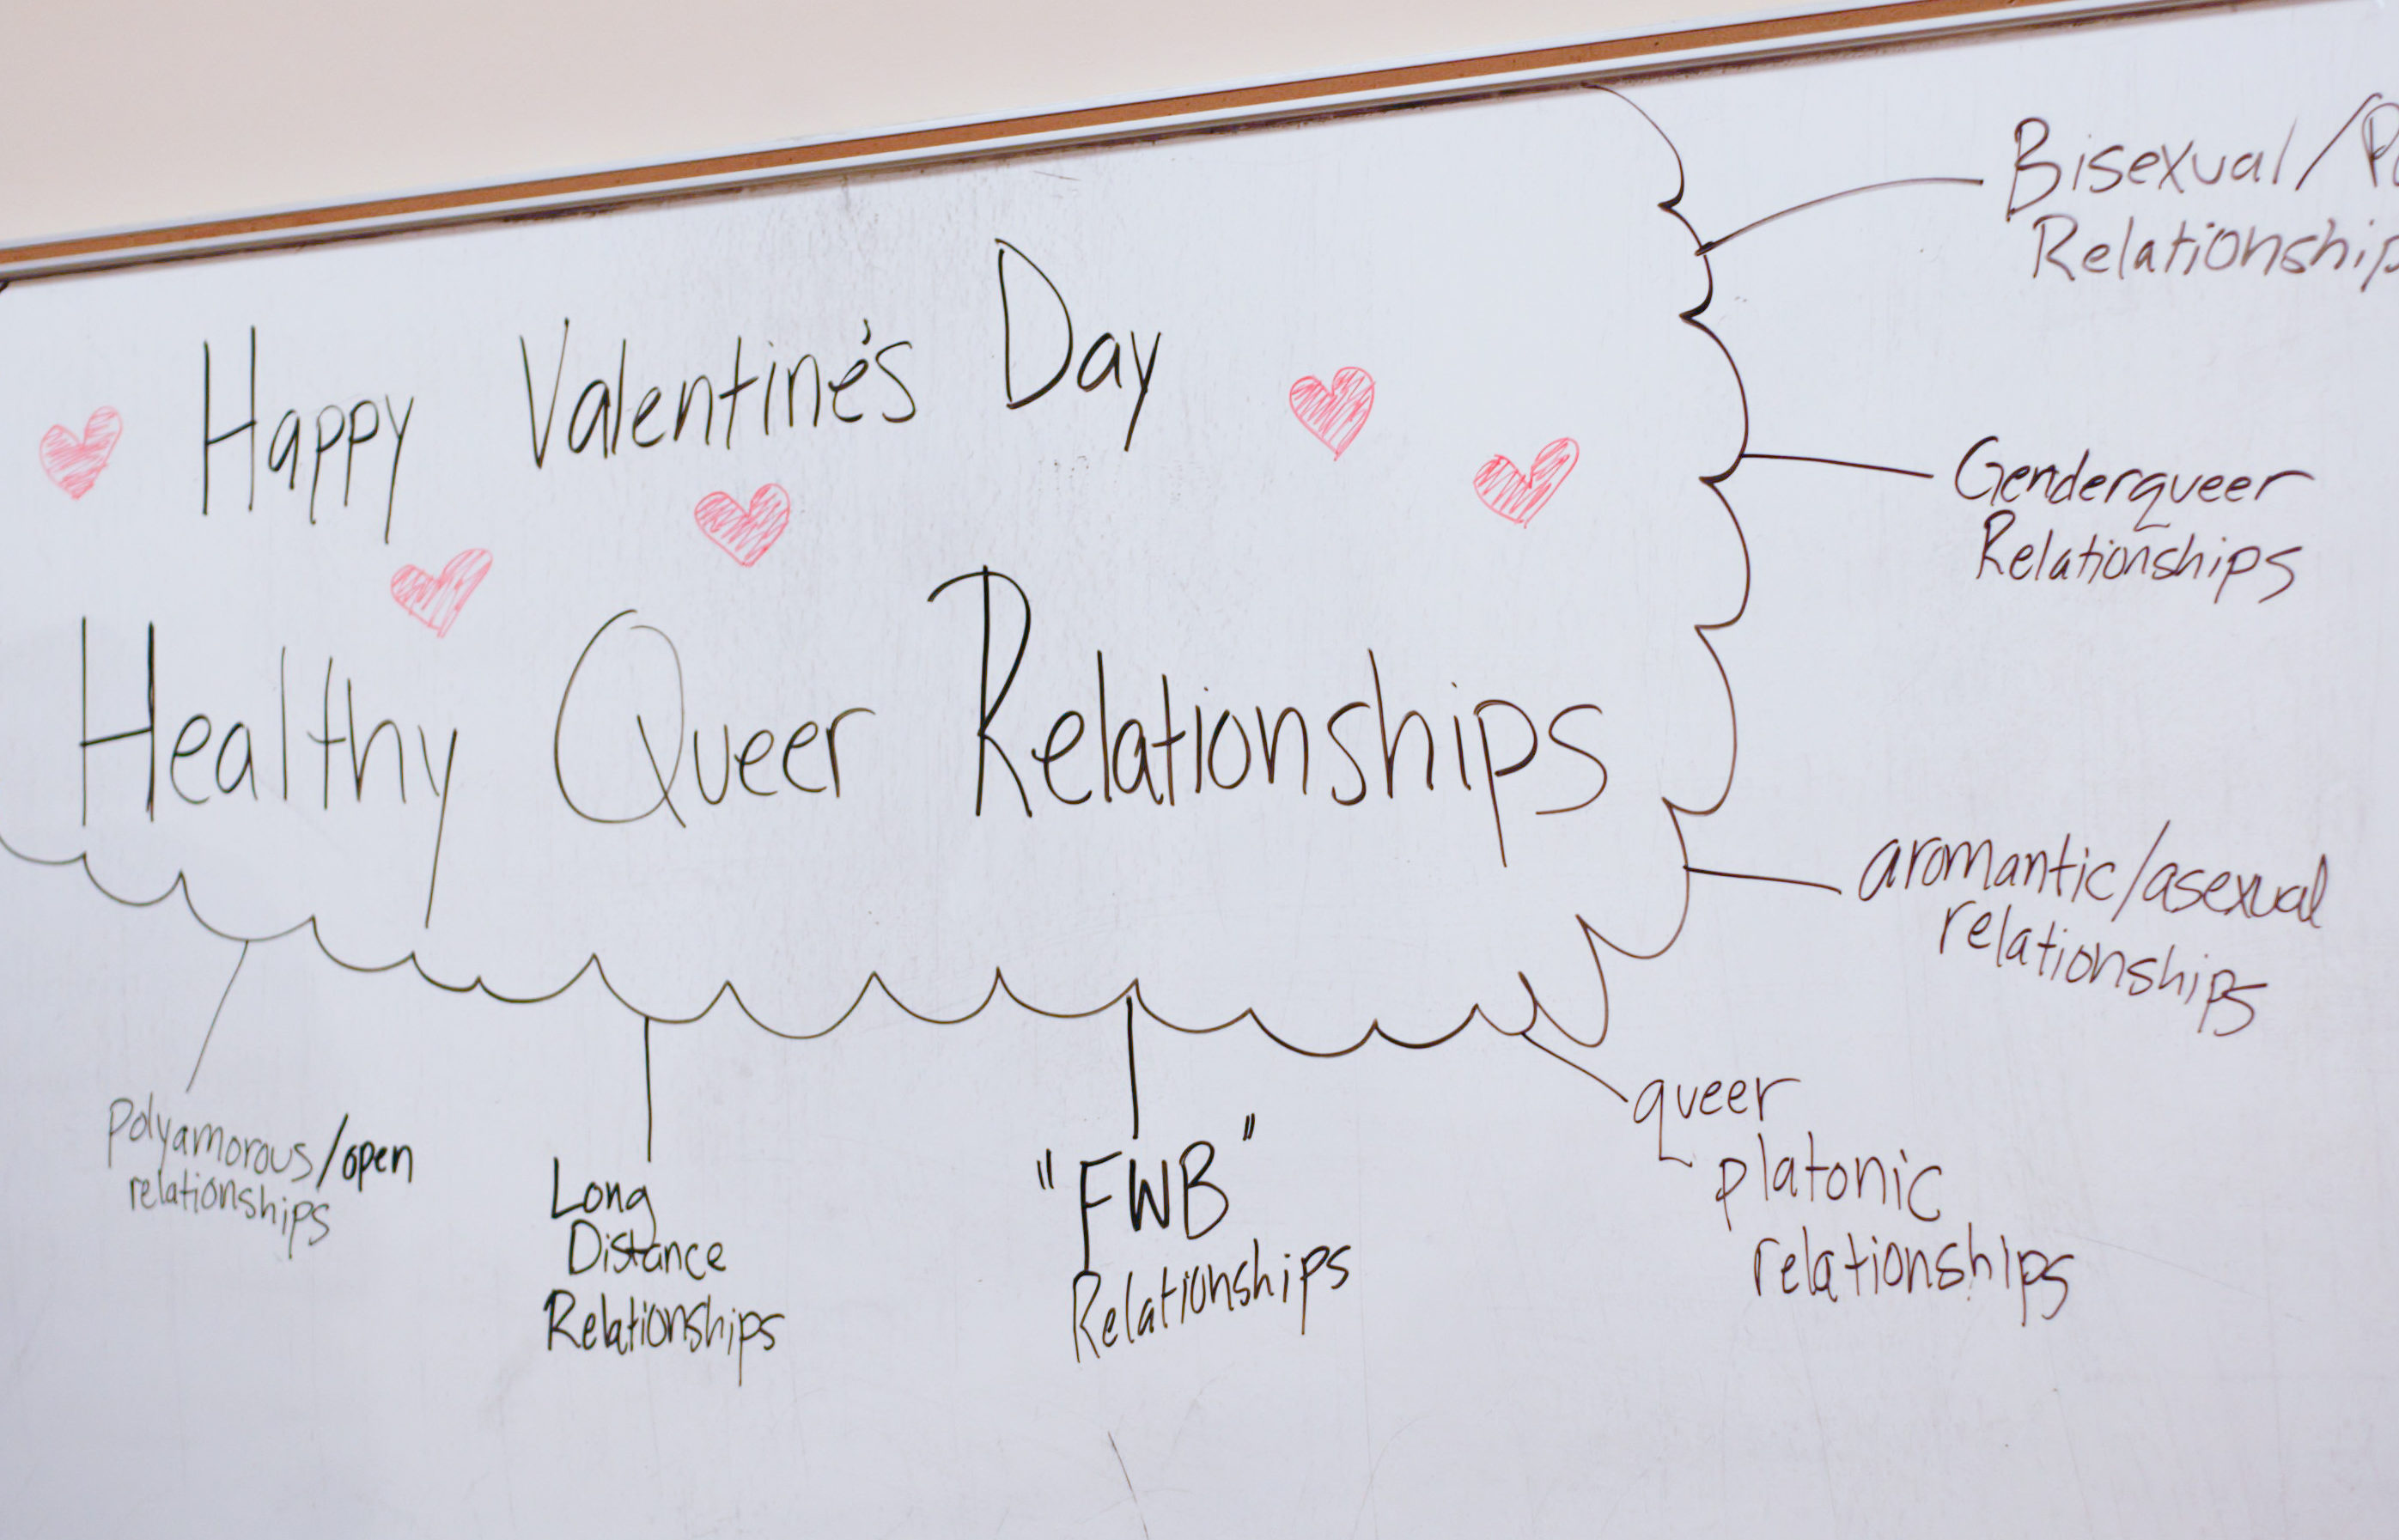 Happy Valentine's Day
Healthy Queer Relationships
Bisexual/
Relationship
Genderqueer
Relationships
aromantic/asexual
relationships
queer
platonic
relationships
"FWB"
Relationships
Long
Distance
Relationships
polyamorous/open
relationships